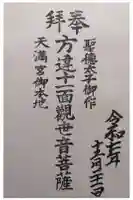 奉拝
聖徳太子御作
方違十一面観世音菩薩
天満宮御本地
令和七年
十二月二十三日